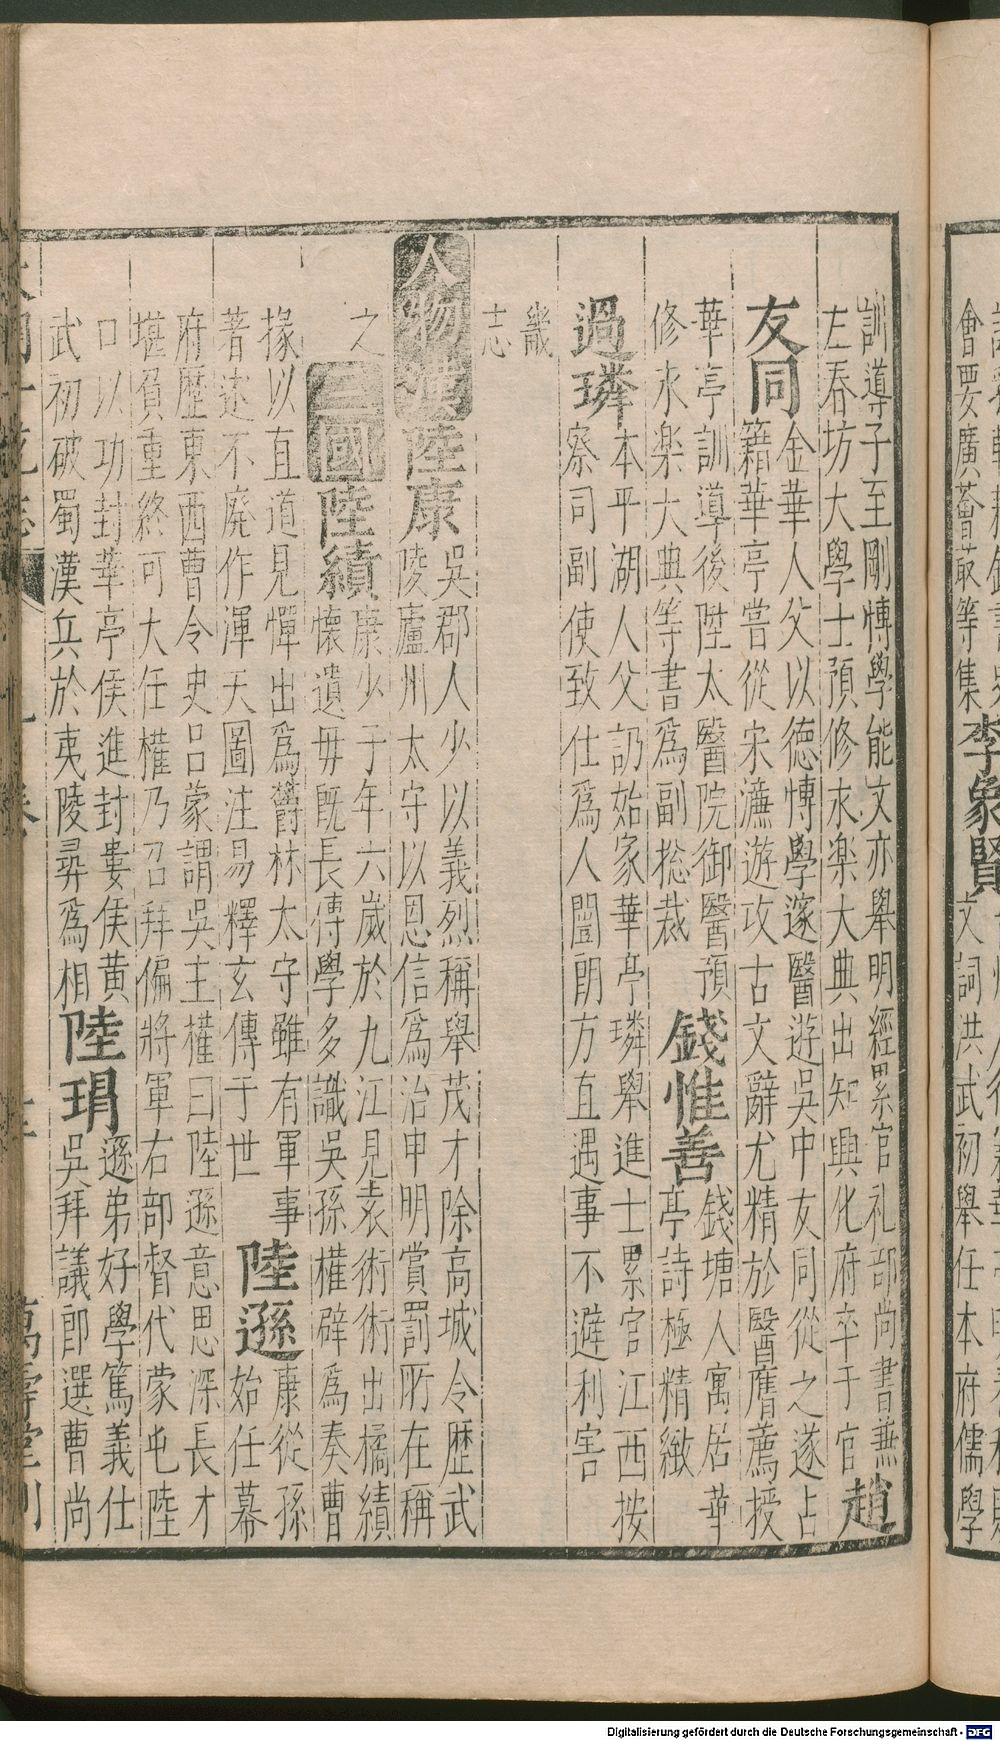 會要廣薈蕞等集
李象賢
文詞洪武初舉任本府儒學
訓導子至剛愽學能文亦舉明經累官礼部尚書兼
左春坊大學士預修永楽大典出知興化府卒于官
趙友同
金華人父以德愽學邃醫遊吳中友同從之遂占
籍華亭嘗從宋濂遊攻古文辭尤精於醫膺薦授
華亭訓導後陞太醫院御醫預
修永楽大典等書爲副捴裁
錢惟善
錢塘人寓居華
亭詩極精緻
過璘
本平湖人父訒始家華亭璘舉進士累官江西按
察司副使致仕爲人闓朗方直遇事不避利害
畿
志
人物漢陸康
吳郡人少以義烈稱舉茂才除高城令歴武
陵廬州太守以恩信爲治申明賞罰所在稱
之
三國陸績
康少子年六歲於九江見袁術術出橘績
懷遺毋既長傳學多識吳孫權辟爲奏曹
掾以直道見憚出爲欝林太守雖有軍事
著述不廢作渾天圖注易釋玄傳于世
陸遜
康從孫
始任幕
府歴東西曹令史呂蒙謂吳主權曰陸遜意思深長才
堪負重終可大任權乃召拜偏將軍右部督代蒙屯陸
口以功封華亭侯進封婁侯黃
武初破蜀漢兵於夷陵彛爲相
陸瑁
遜弟好學篤義仕
吳拜議郎選曹尚
萬壽堂刊
Digitalisierung gefördert durch die Deutsche Forschungsgemeinschaft - DFG